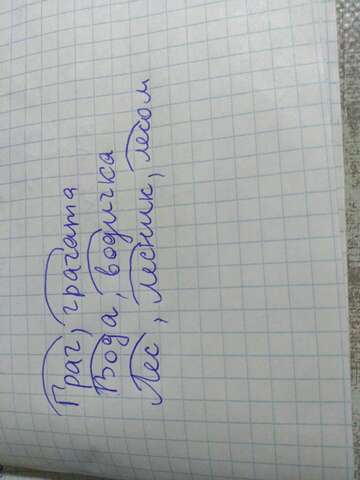 Граг, грагата
Вода, водичка
Лес, лесник, лесом